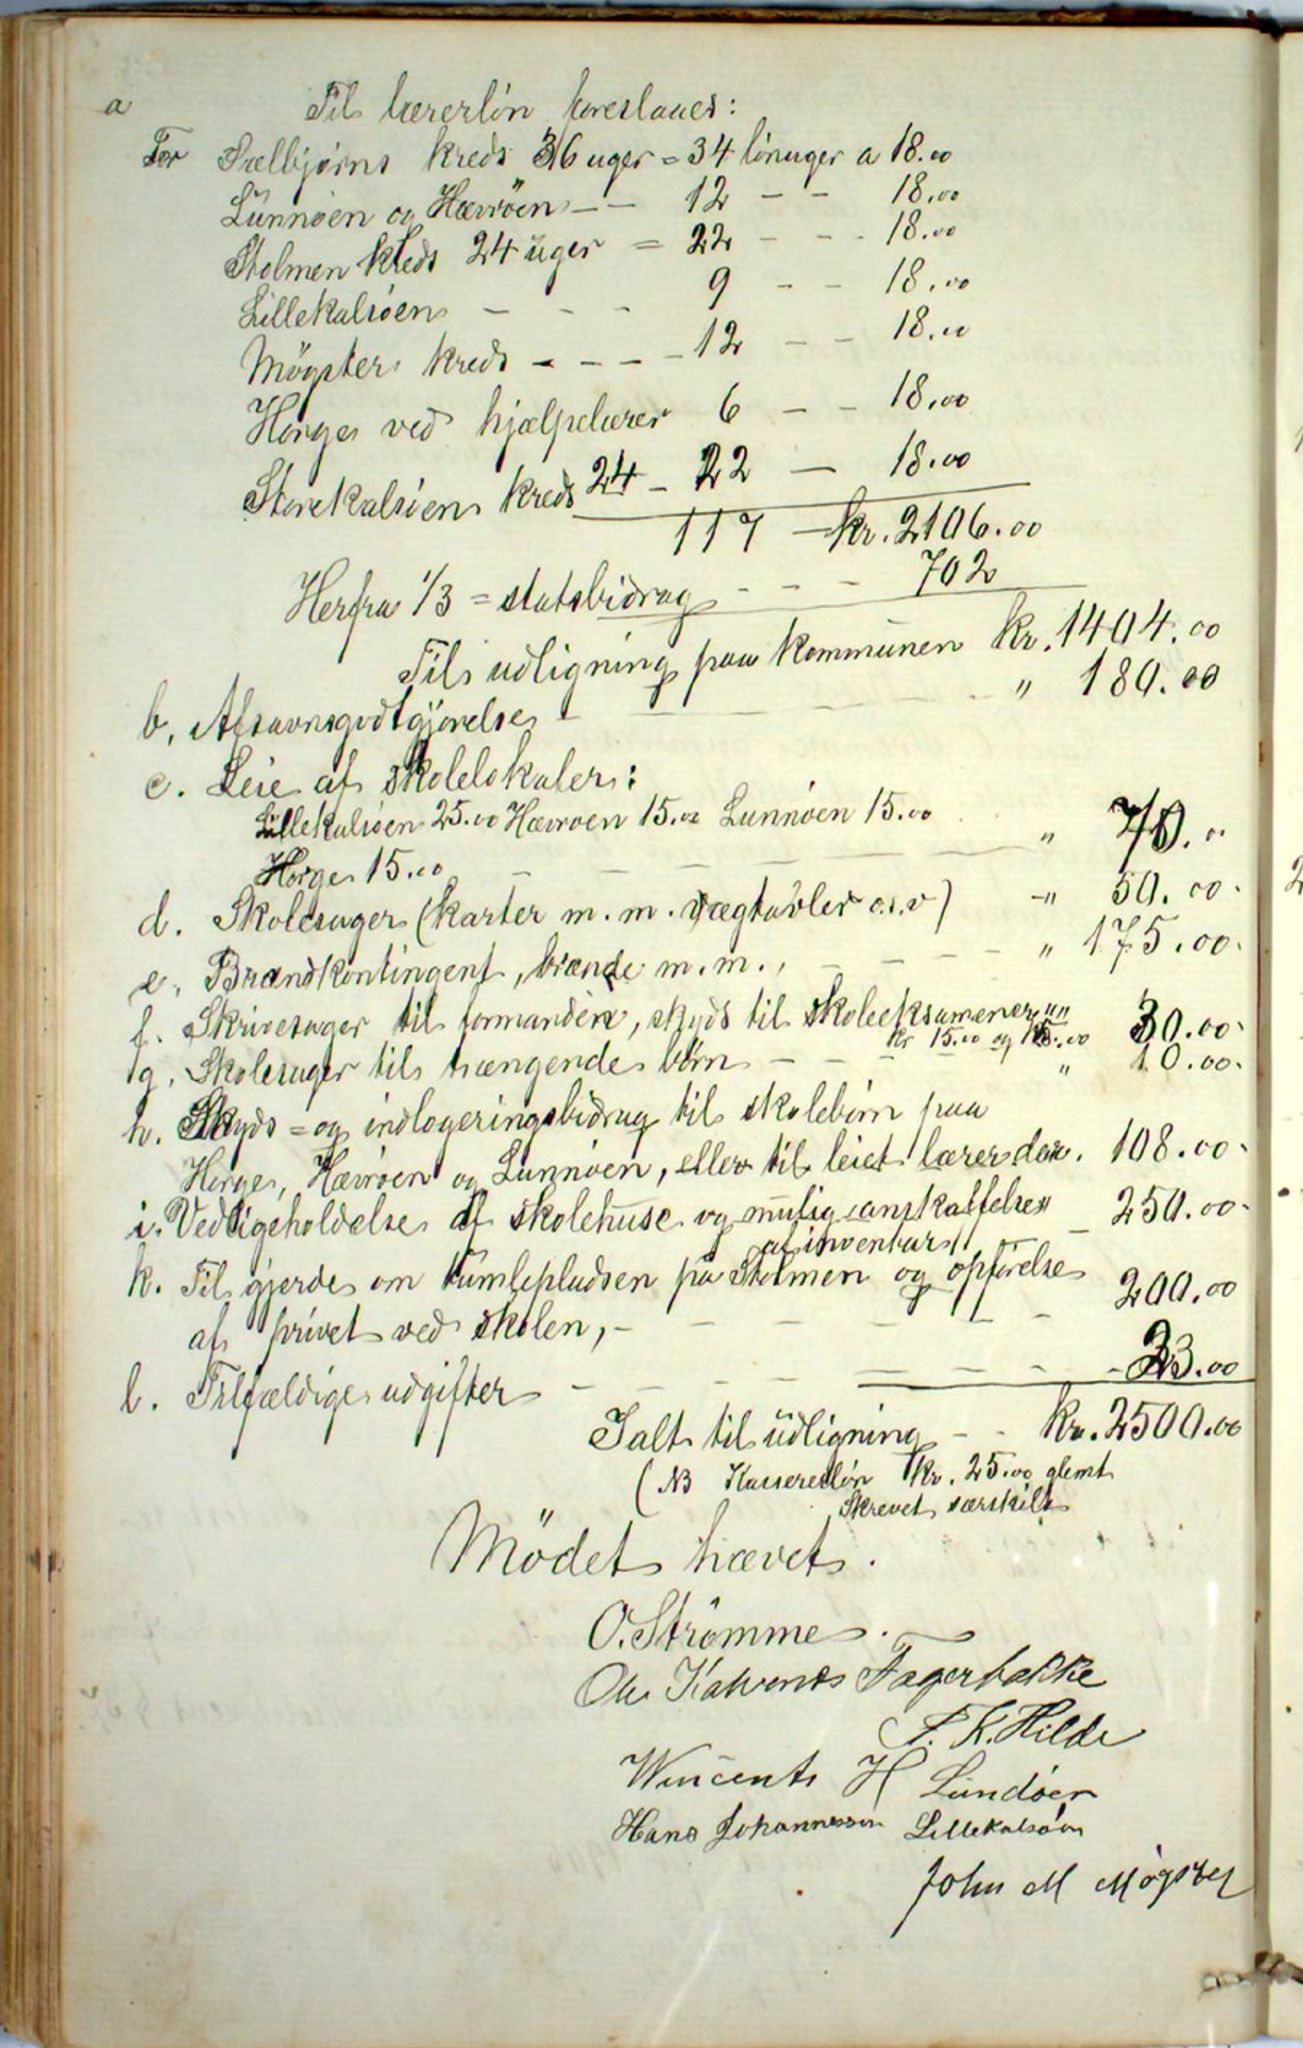 a Til lærerlön foreslaaes:
For Sælbjørns kreds 36 uger = 34 lönuger a 18.00
Lünnöen og Hævröen - - 12 - - 18.00
Stolmen kreds 24 üger = 22 - - - 18.00
Lillekalsöen - - - 9 - - 18.00
Mögster kreds - - - - 12 - - 18.00
Horge ved hjælpelærer 6 - - 18.00
Storekalsöen kreds 24 - 22 - 18.00
117 - kr. 2106.00
Herfra 1/3 = statsbidrag - - - 702
Til udligning paa kommünen kr. 1404.00
b, Afsavnsgodtgjörelse - - - - " 180.00
c. Leie af skolelokaler:
Lillekalsöen 25.00 Hævroen 15.00 Lunnöen 15.00
Horge 15.00 - - - - " 70.00
d. Skolesager (karter m. m. vægtavler o.s.v) - " 50.00.
e, Brandkontingent, brænde m. m., - - - - " 175.00.
f. Skrivesager til formanden, skyds til skoleeksamener """ 30.00.
kr 15.00 og 15.00
g, Skolesager til trængende börn - - - - " 10.00.
h. Skyds = og indlogeringsbidrag til skolebörn paa
Horge, Hævröen og Lunnöen, eller til leiet lærer der. 108.00.
i. Vedligeholdelse af skolehuse og mülig anskaffelse " - 250.00.
af inventar
k. Til gjerde om tümlepladsen på Stolmen og opförelse
af privet ved skolen, - - - - - - 200.00
l. Tilfældige udgifter - - - - - - - - 23.00
Ialt til üdligning - - kr. 2500.00
(NB Kassererlön kr. 25.00 glemt
Skrevet særskilt
Mödet hævet.
O. Strömme.
Ole Kalvenes Fagerbakke
P. K. Hilde
Wincents H Lundöen
Hans Johannessen Lillekalsöen
John M Møgster